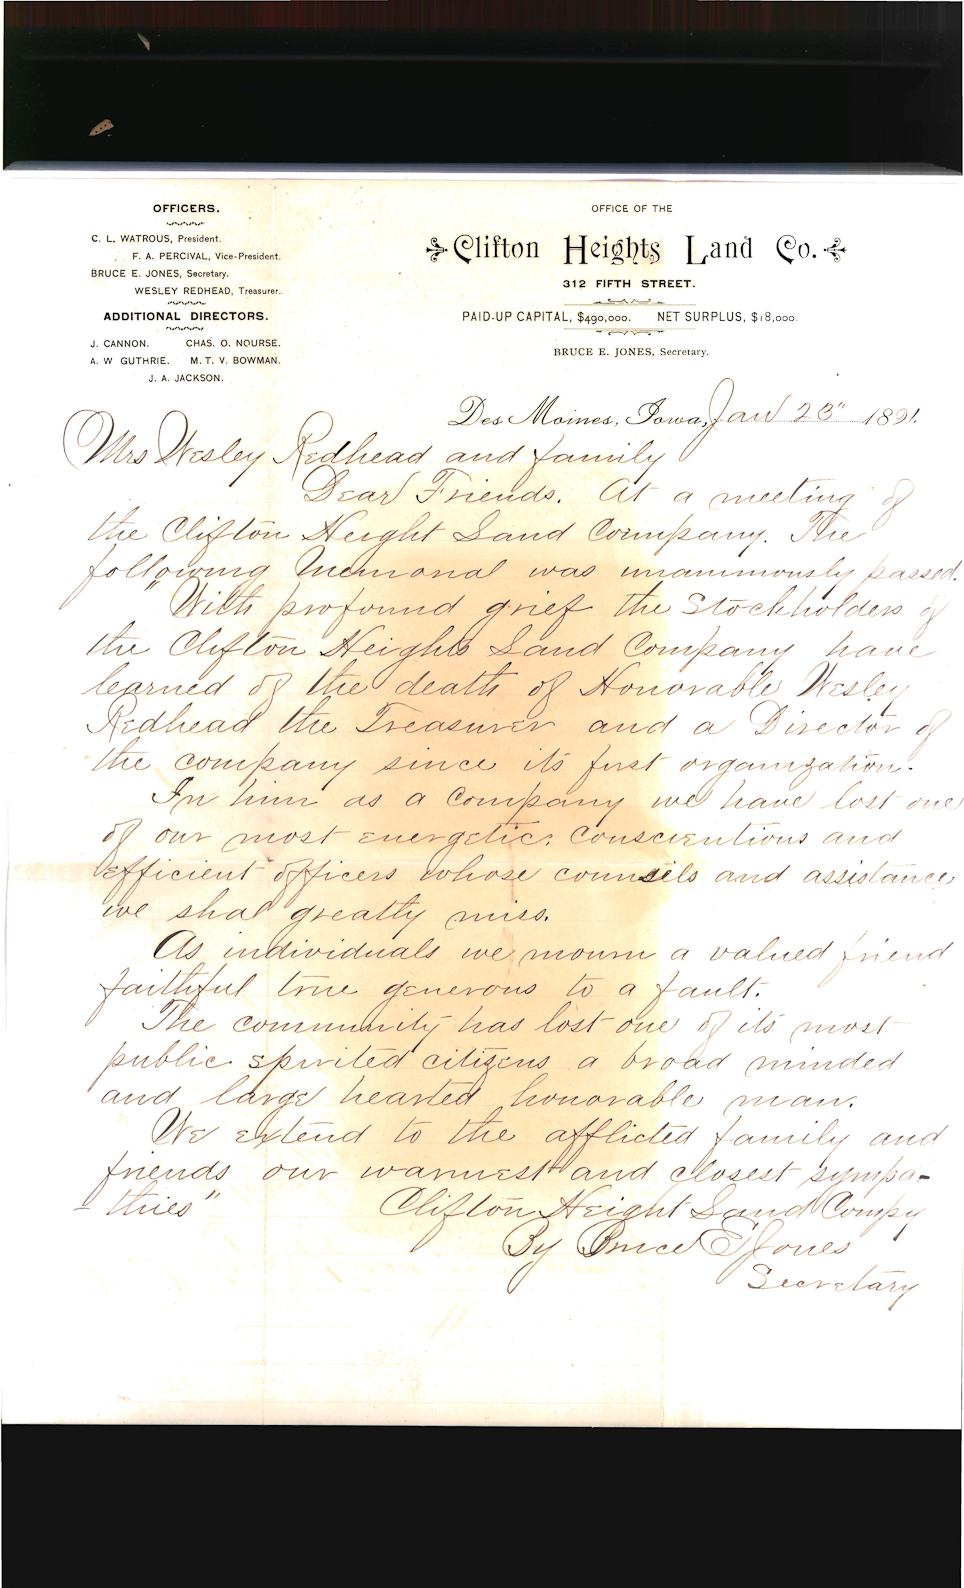 OFFICERS.
C. L. WATROUS, President.
F. A. PERCIVAL, Vice-President.
BRUCE E. JONES, Secretary.
WESLEY REDHEAD, Treasurer.
ADDITIONAL DIRECTORS.
J. CANNON. CHAS. O. NOURSE.
A. W GUTHRIE. M. T. V. BOWMAN.
J. A. JACKSON.
OFFICE OF THE
Clifton Heights Land Co.
312 FIFTH STREET.
PAID-UP CAPITAL, $490,000. NET SURPLUS, $18,000.
BRUCE E. JONES, Secretary.
Des Moines, Iowa, Jan 23" 1891.
Mrs Wesley Redhead and family
Dear Friends. At a meeting of
the Clifton Height Land Company. The
following Memorial was unanimously passed.
"With profound grief the Stockholders of
the Clifton Heights Land Company have
learned of the death of Honorable Wesley
Redhead the Treasurer and a Director of
the company since its first organization.
In him as a Company we have lost one
of our most energetic, conscientious and
efficient officers whose counsels and assistance
we shal greatly miss.
As individuals we mourn a valued friend
faithful true generous to a fault.
The community has lost one of its most
public spirited citizens a broad minded
and large hearted honorable man.
We extend to the afflicted family and
friends our warmest and closest sympa-
-thies"
Clifton Height Land Compy
By Bruce E Jones
Secretary